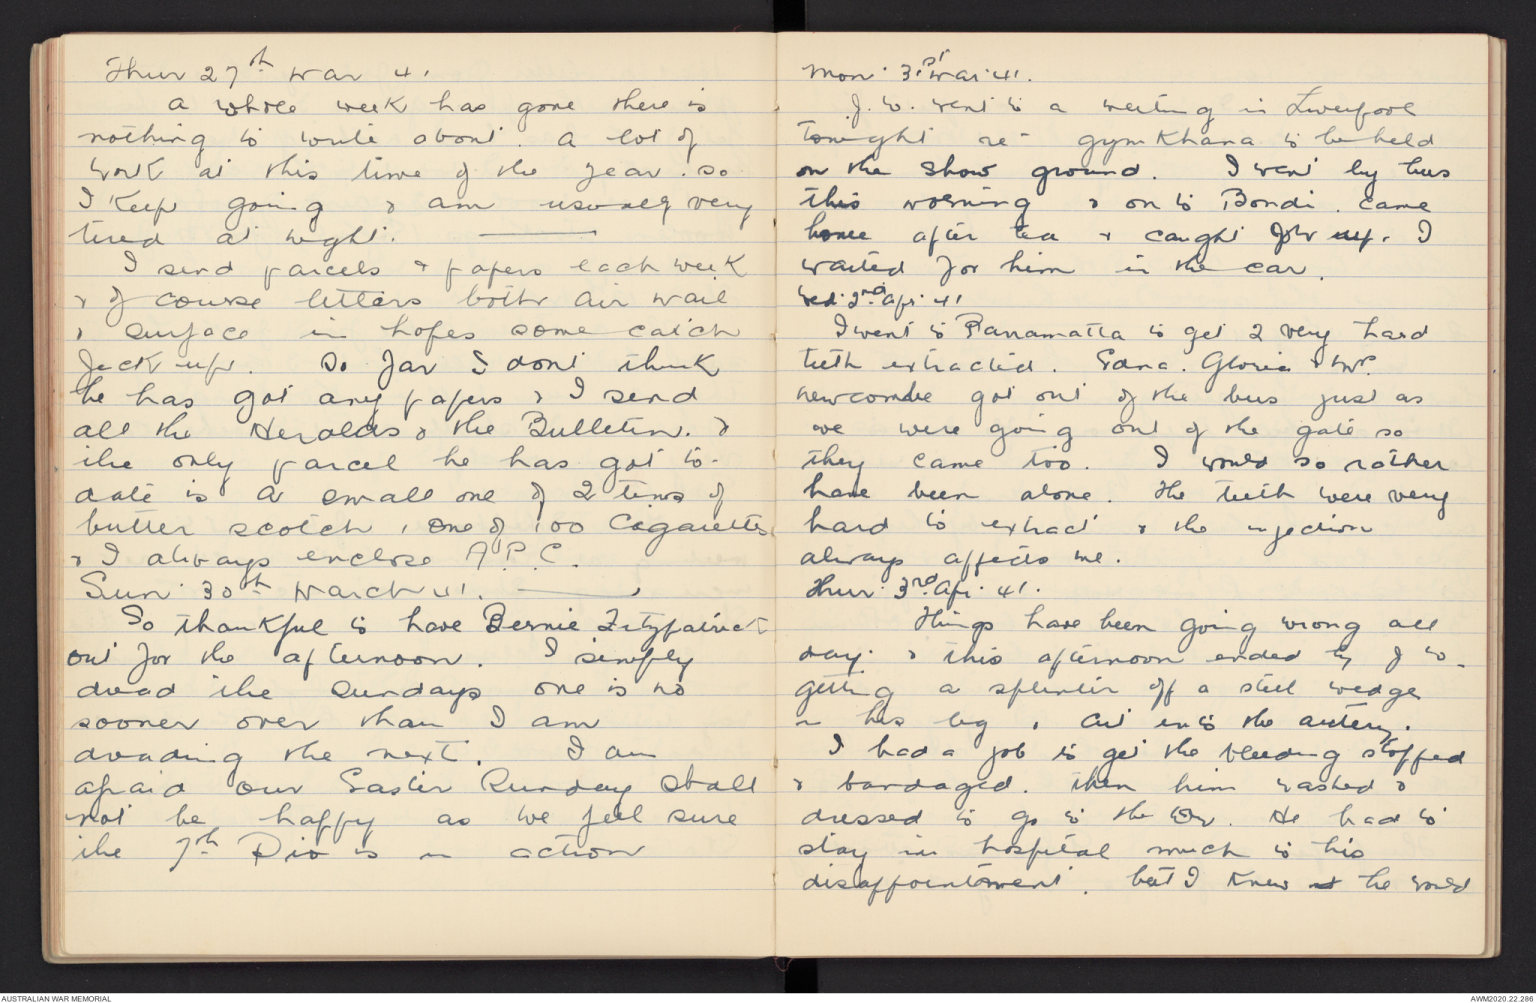 Thur 27th Mar 41.
A whole week has gone there is
nothing to write about. A lot of
work at this time of the year. so
I keep going & am usually very
tired at night.
I send parcels & papers each week
& of course letters both air mail
& surface in hopes some catch
Jack up. So far I dont think
he has got any papers & I send
all the Heralds & the Bulletin. &
the only parcel he has got to-
date is a small one of 2 tins of
butter scotch, one of 100 Cigarettes
& I always enclose A.P.C.
Sun 30th March 41.
So thankful to have Bernie Fitzpatrick
out for the afternoon. I simply
dread the Sundays one is no
sooner over than I am
dreading the next. I am
afraid our Easter Sunday shall
not be happy as we feel sure
the 7th Div is in action
Mon. 31st Mar 41.
J.W. went to a meeting in Liverpool
tonight re- gymkhana to be held
on the show ground. I went by bus
this morning & on to Bondi. Came
home after tea & caught John up. I
waited for him in the car.
Wed. 2nd Apr. 41
I went to Parramatta to get 2 very hard
teeth extracted. Edna. Gloria & Mr.
Newcombe got out of the bus just as
we were going out of the gate so
they came too. I would so rather
have been alone. The teeth were very
hard to extract & the injection
always affects me.
Thur. 3rd Apr. 41.
Things have been going wrong all
day. & this afternoon ended by J W.
getting a splinter off a steel wedge
in his leg, cut into the artery.
I had a job to get the bleeding stopped
& bandaged. then him washed &
dressed to go to the Dr. He had to
stay in hospital much to his
disappointment. but I knew he would
AUSTRALIAN WAR MEMORIAL
AWM2020.22.286